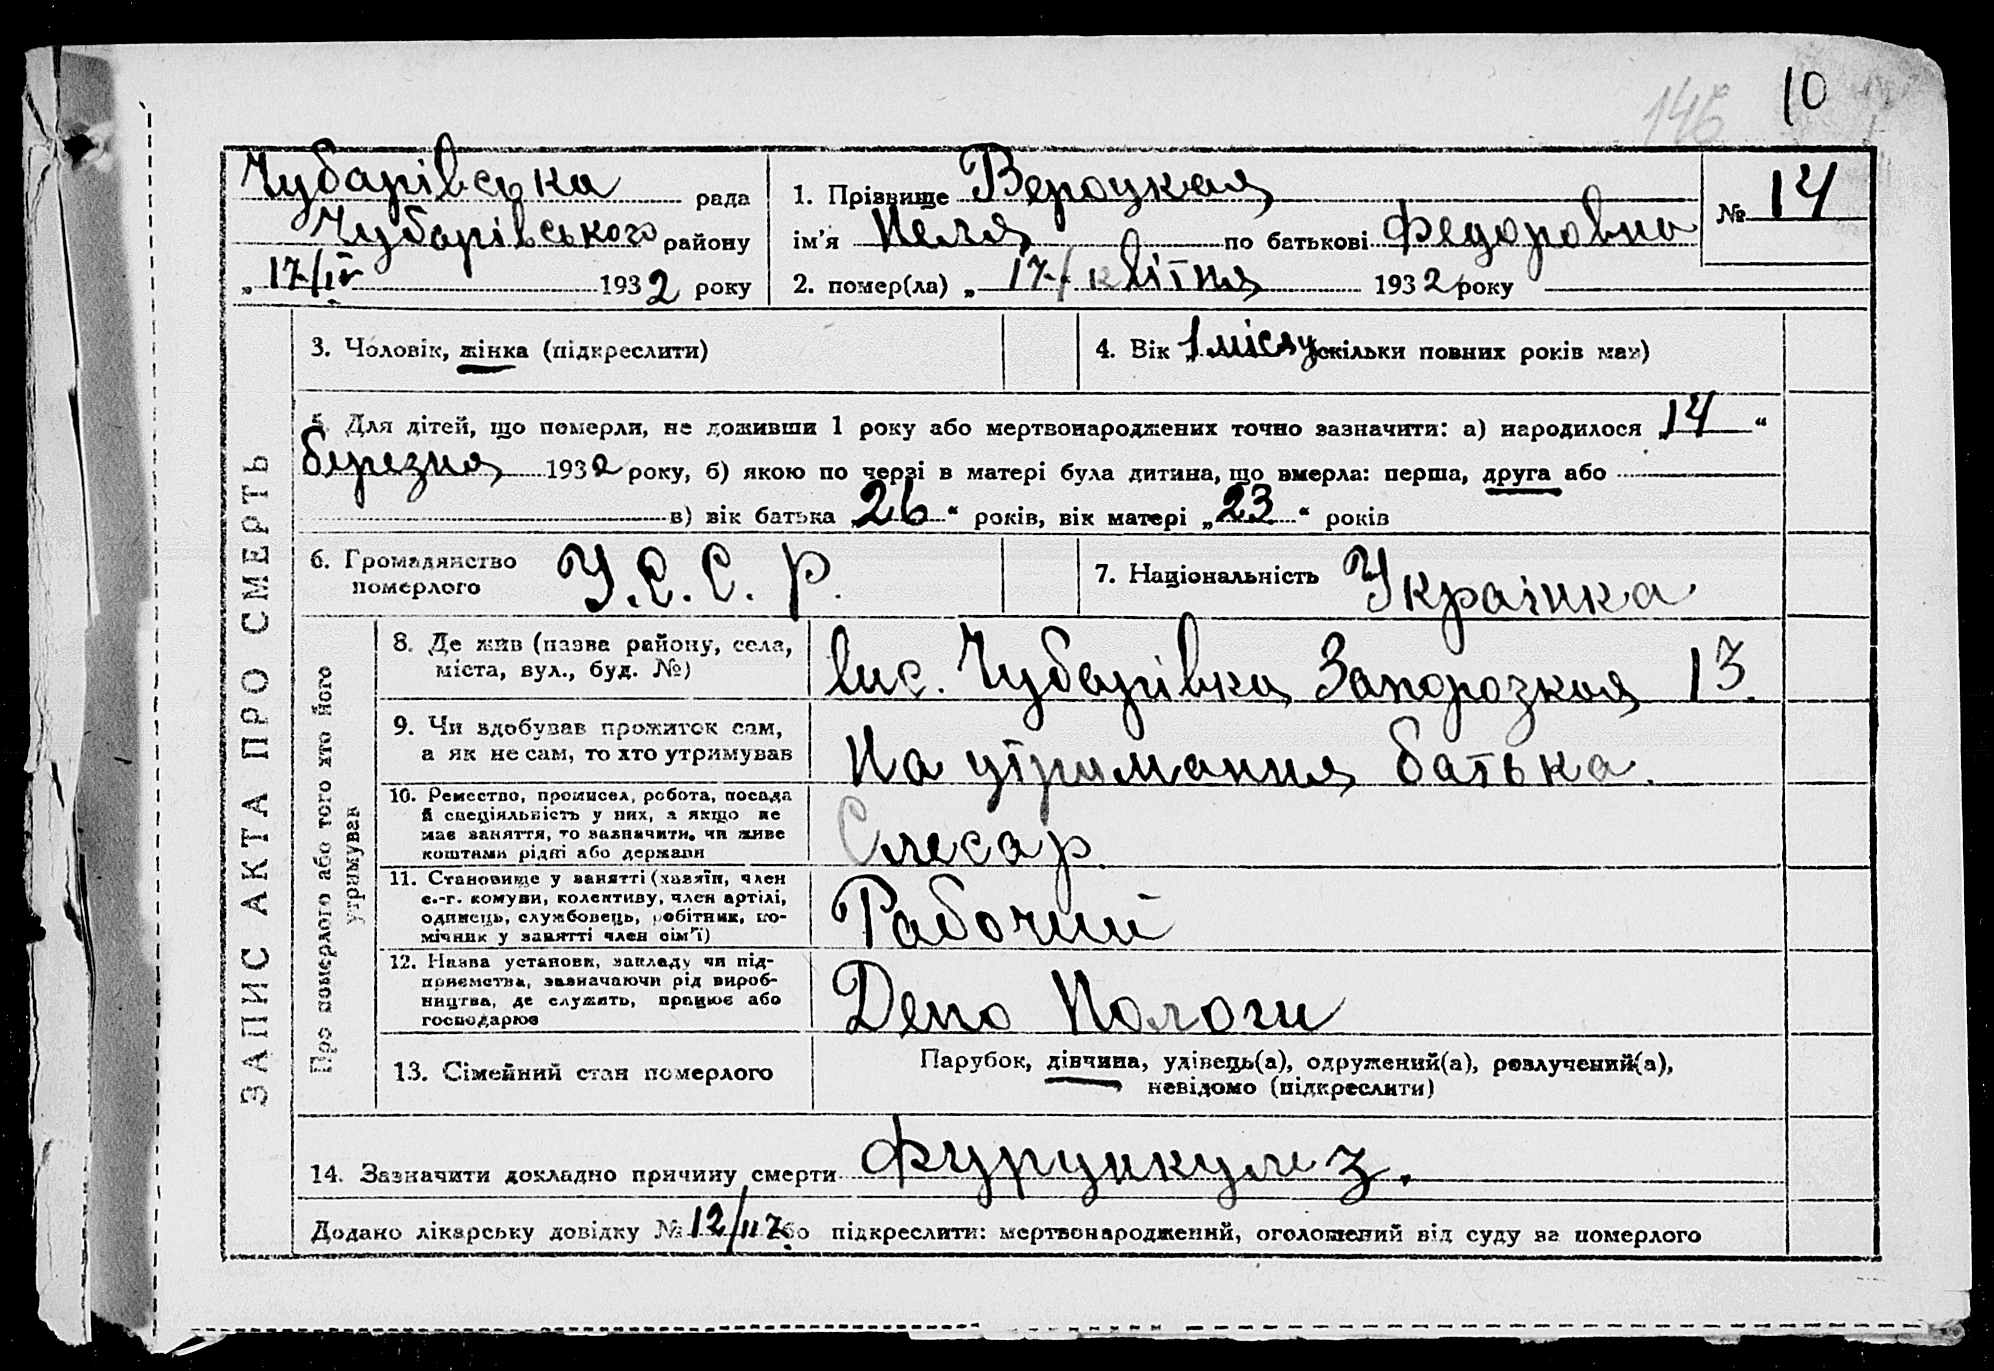 146 10
Чубарівська рада
Чубарівського району
„ 17/IV 1932 року
1. Прізвище Вероцкая
ім'я Неля по батькові Федоровна
2. помер(ла) „ 17/ квітня 1932 року
№ 14
3. Чоловік, жінка (підкреслити)
4. Вік 1 місяц скільки повних років мав)
5. Для дітей, що померли, не доживши 1 року або мертвонароджених точно зазначити: а) народилося „ 14 “
березня 1932 року, б) якою по черзі в матері була дитина, що вмерла: перша, друга або
в) вік батька „ 26 “ років, вік матері „ 23 “ років
6. Громадянство
померлого У.С.С.Р.
7. Національність Українка
ЗАПИС АКТА ПРО СМЕРТЬ
Про померлого або того хто його
утримував
8. Де жив (назва району, села,
міста, вул., буд. №)
вис. Чубарівка Запорозкая 13.
9. Чи здобував прожиток сам,
а як не сам, то хто утримував
На утримания батька.
10. Ремество, промисел, робота, посада
й спеціяльність у них, а якщо не
має заняття, то зазначити, чи живе
коштами рідні або держави
Слесар.
11. Становище у занятті (хазяїн, член
с.-г. комуни, колективу, член артілі,
одинець, службовець, робітник, по-
мічник у занятті член сім'ї)
Рабочий
12. Назва установи, закладу чи під-
приємства, зазначаючи рід вироб-
ництва, де служить, працює або
господарює
Депо Пологи
13. Сімейний стан померлого
Парубок, дівчина, удівець(а), одружений(а), розлучений(а),
невідомо (підкреслити)
14. Зазначити докладно причину смерти Фурункулез.
Додано лікарську довідку № 12/117 або підкреслити: мертвонароджений, оголошений від суду за померлого